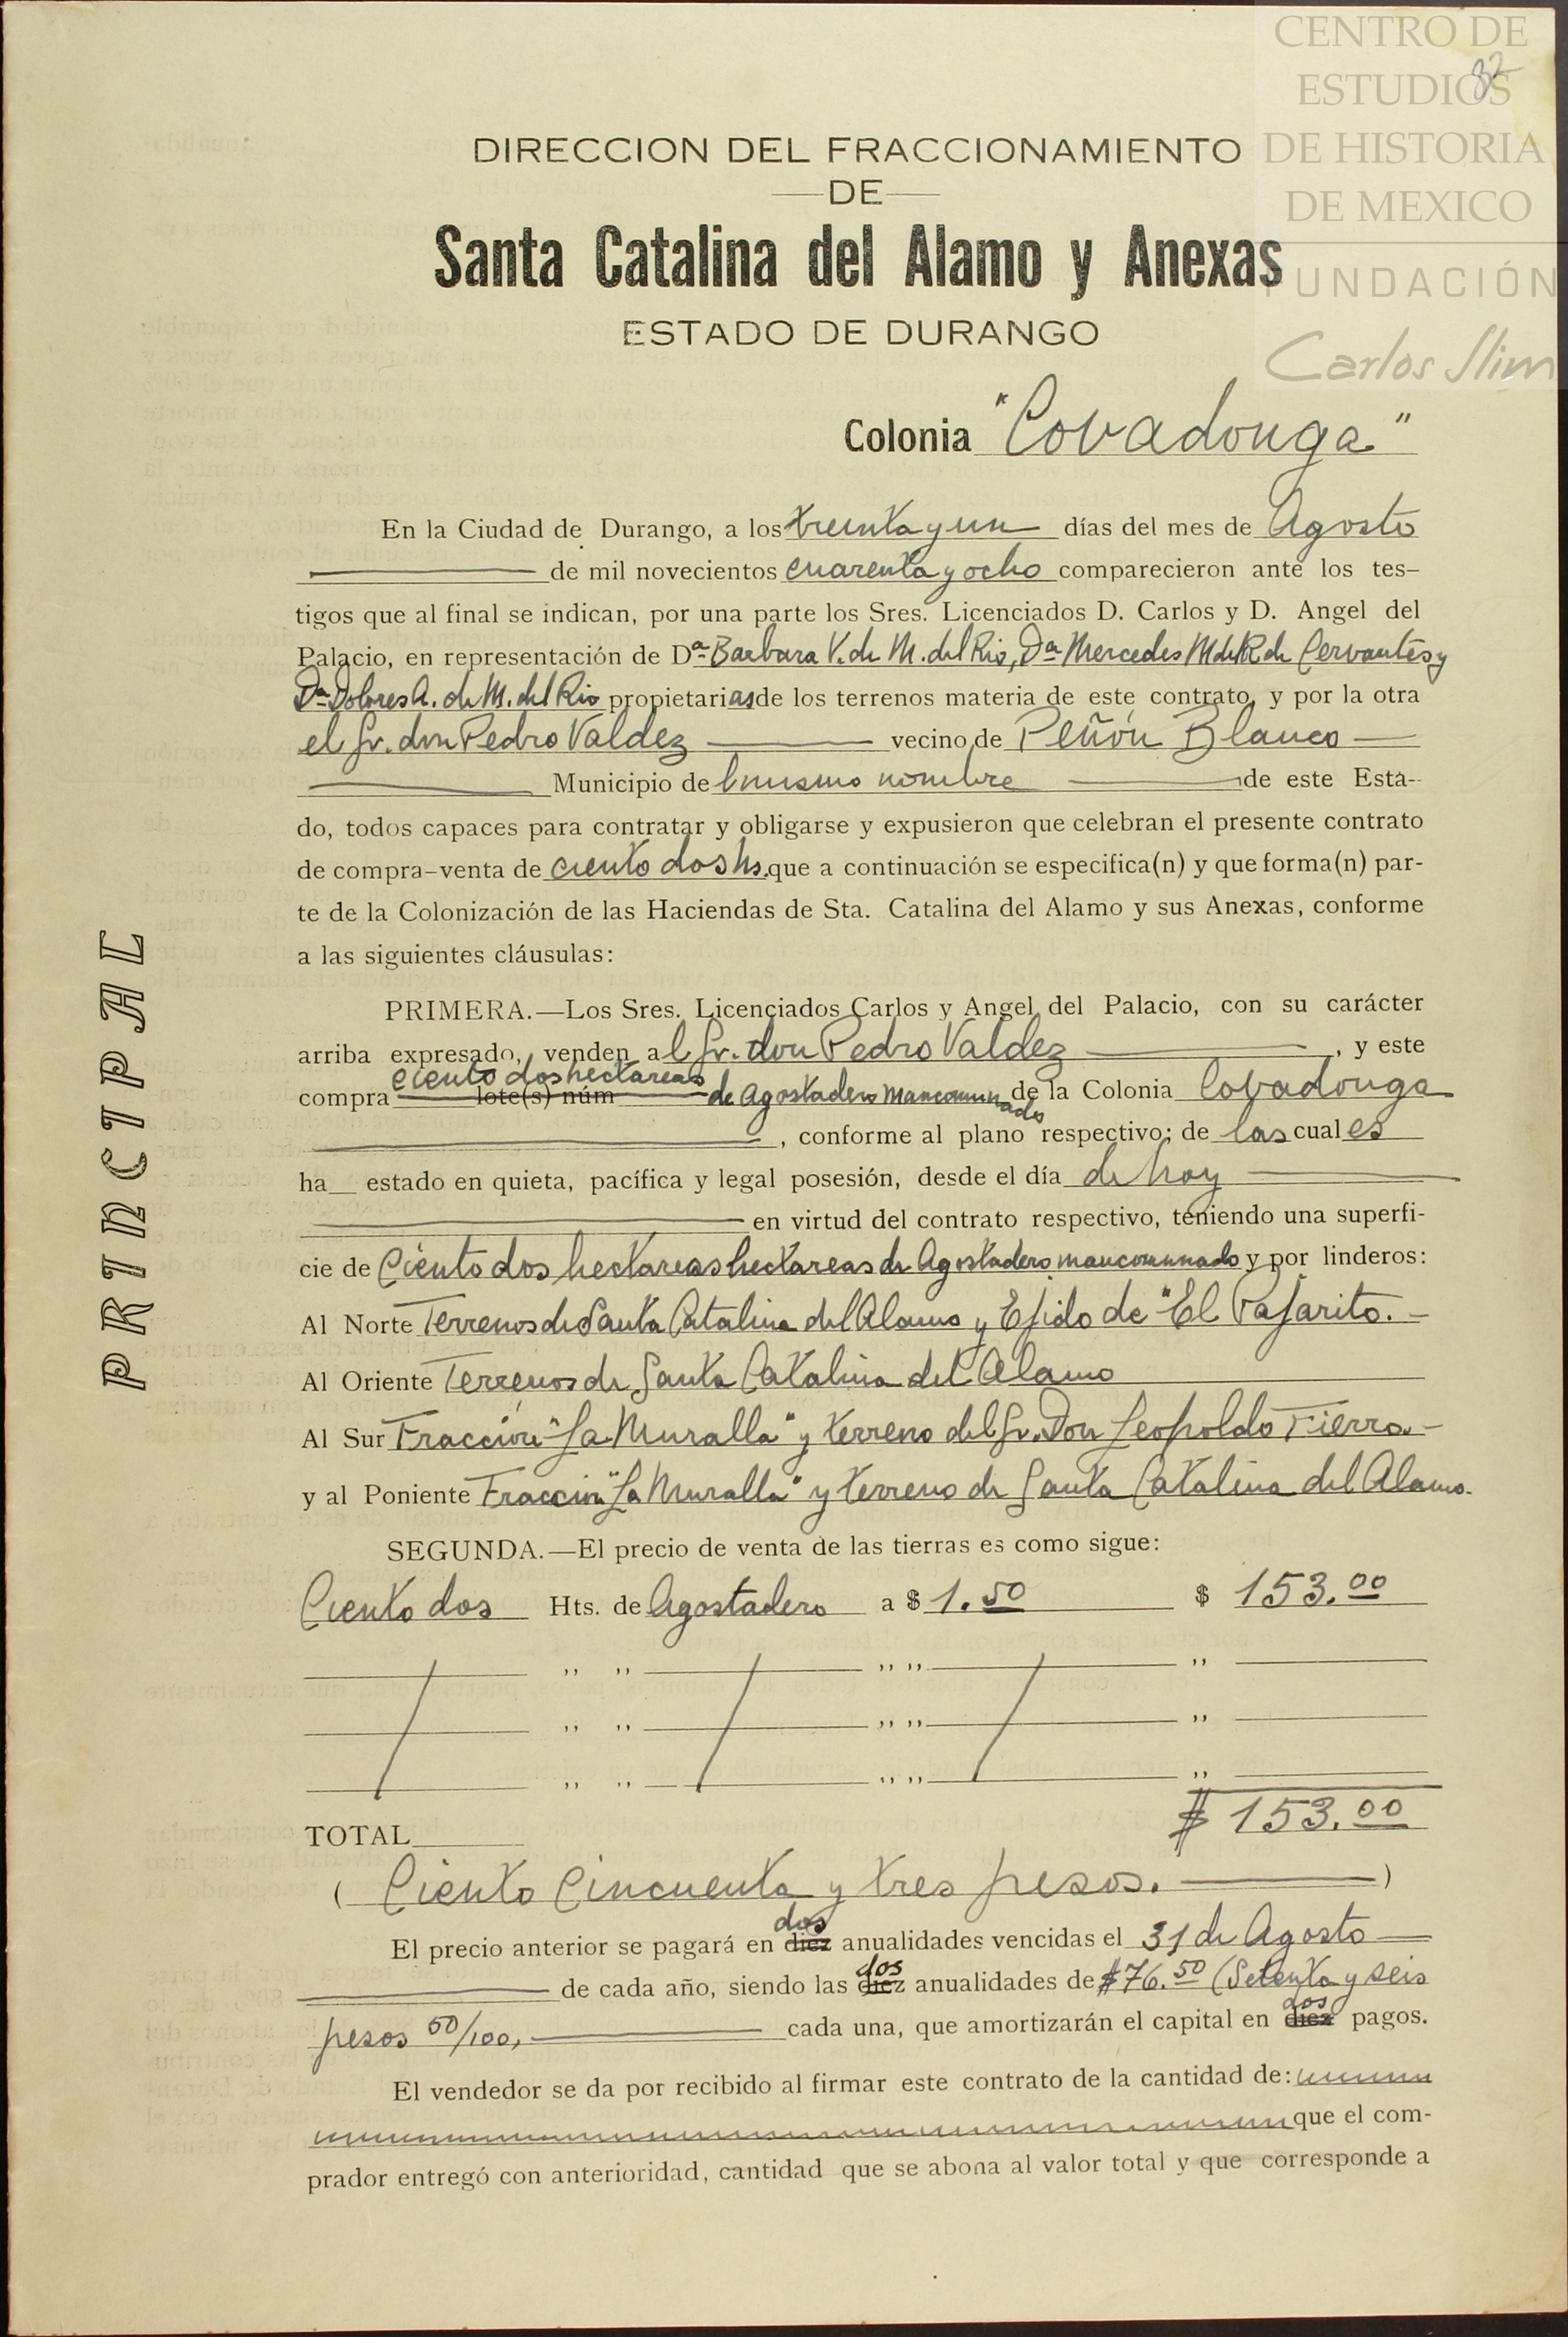 CENTRO DE
ESTUDIOS
DE HISTORIA
DE MEXICO
FUNDACIÓN
Carlos Slim
32
DIRECCION DEL FRACCIONAMIENTO
—DE—
Santa Catalina del Alamo y Anexas
ESTADO DE DURANGO
Colonia "Covadonga"
En la Ciudad de Durango, a los treinta y un días del mes de Agosto
de mil novecientos cuarenta y ocho comparecieron ante los tes-
tigos que al final se indican, por una parte los Sres. Licenciados D. Carlos y D. Angel del
Palacio, en representación de Da. Barbara V. de M. del Rio, Da. Mercedes M. del R. de Cervantes y
Da. Dolores A. de M. del Rio propietarias de los terrenos materia de este contrato, y por la otra
el Sr. don Pedro Valdez vecino de Peñón Blanco
Municipio del mismo nombre de este Esta-
do, todos capaces para contratar y obligarse y expusieron que celebran el presente contrato
de compra-venta de ciento dos hs. que a continuación se especifica(n) y que forma(n) par-
te de la Colonización de las Haciendas de Sta. Catalina del Alamo y sus Anexas, conforme
a las siguientes cláusulas:
PRINCIPAL
PRIMERA.—Los Sres. Licenciados Carlos y Angel del Palacio, con su carácter
arriba expresado, venden al Sr. don Pedro Valdez, y este
ciento dos hectareas
compra lote(s) núm de Agostadero mancomunado de la Colonia Covadonga
, conforme al plano respectivo; de las cuales
ha estado en quieta, pacífica y legal posesión, desde el día de hoy
en virtud del contrato respectivo, teniendo una superfi-
cie de Ciento dos hectareas hectareas de Agostadero mancomunado y por linderos:
Al Norte Terrenos de Santa Catalina del Alamo y Ejido de "El Pajarito.
Al Oriente Terrenos de Santa Catalina del Alamo
Al Sur Fracción "La Muralla" y terreno del Sr. Don Leopoldo Fierro.
y al Poniente Fraccion "La Muralla" y terreno de Santa Catalina del Alamo.
SEGUNDA.—El precio de venta de las tierras es como sigue:
Ciento dos Hts. de Agostadero a $ 1.50 $ 153.00
,, ,, ,, ,, ,,
,, ,, ,, ,, ,,
,, ,, ,, ,, ,,
TOTAL $ 153.00
( Ciento Cincuenta y tres pesos. )
dos
El precio anterior se pagará en diez anualidades vencidas el 31 de Agosto
dos
de cada año, siendo las diez anualidades de $76.50 (Setenta y seis
dos
pesos 50/100, cada una, que amortizarán el capital en diez pagos.
El vendedor se da por recibido al firmar este contrato de la cantidad de:
que el com-
prador entregó con anterioridad, cantidad que se abona al valor total y que corresponde a